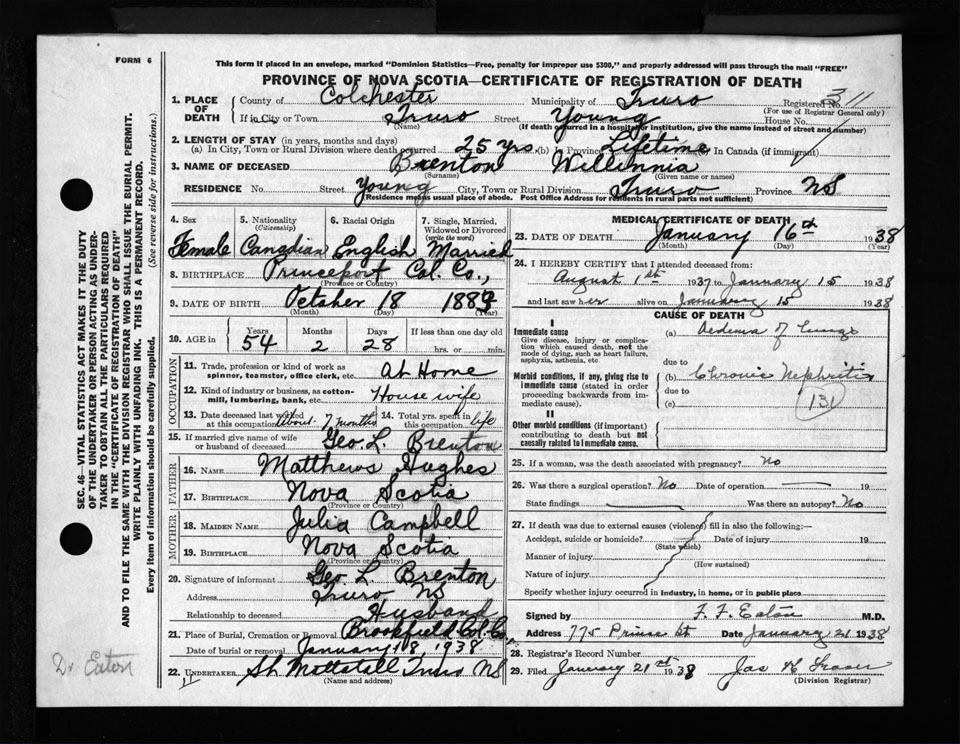 FORM 6
This form if placed in an envelope, marked "Dominion Statistics—Free, penalty for improper use $300," and properly addressed will pass through the mail "FREE"
PROVINCE OF NOVA SCOTIA—CERTIFICATE OF REGISTRATION OF DEATH
1. PLACE OF DEATH County of Colchester Municipality of Truro Registered No. 311
(For use of Registrar General only)
If in City or Town Truro Street Young House No.
(Name) (If death occurred in a hospital or institution, give the name instead of street and number)
2. LENGTH OF STAY (in years, months and days)
(a) In City, Town or Rural Division where death occurred 25 yrs. (b) In Province Lifetime (c) In Canada (if immigrant)
3. NAME OF DECEASED Brenton Willinnia
(Surname) (Given name or names)
RESIDENCE No. Street Young City, Town or Rural Division Truro Province NS
(Residence means usual place of abode. Post Office Address for residents in rural parts not sufficient)
4. Sex 5. Nationality (Citizenship) 6. Racial Origin 7. Single, Married, Widowed or Divorced (write the word)
Female Canadian English Married
8. BIRTHPLACE Princeport Col. Co.,
(Province or Country)
9. DATE OF BIRTH October 18 1883
(Month) (Day) (Year)
10. AGE in Years Months Days If less than one day old
54 2 28 hrs. or min.
OCCUPATION
11. Trade, profession or kind of work as spinner, teamster, office clerk, etc. At Home
12. Kind of industry or business, as cotton-mill, lumbering, bank, etc. House wife
13. Date deceased last worked at this occupation About 7 months 14. Total yrs. spent in this occupation life
15. If married give name of wife or husband of deceased Geo. L. Brenton
FATHER
16. NAME Matthews Hughes
17. BIRTHPLACE Nova Scotia
(Province or Country)
MOTHER
18. MAIDEN NAME Julia Campbell
19. BIRTHPLACE Nova Scotia
(Province or Country)
20. Signature of informant Geo. L. Brenton
Address Truro NS
Relationship to deceased Husband
21. Place of Burial, Cremation or Removal Brookfield Col. Co.,
Date of burial or removal January 18, 1938
22. UNDERTAKER Truro NS
(Name and address)
MEDICAL CERTIFICATE OF DEATH
23. DATE OF DEATH January 16th 1938
(Month) (Day) (Year)
24. I HEREBY CERTIFY that I attended deceased from:
August 1st 1937 to January 15 1938
and last saw her alive on January 15 1938
CAUSE OF DEATH
I
Immediate cause (a) Oedema of lungs
Give disease, injury or complication which caused death, not the mode of dying, such as heart failure, asphyxia, asthenia, etc.
due to
Morbid conditions, if any, giving rise to immediate cause (stated in order proceeding backwards from immediate cause). (b) Chronic Nephritis
due to 131
(c)
II
Other morbid conditions (if important) contributing to death but not causally related to immediate cause.
25. If a woman, was the death associated with pregnancy? No
26. Was there a surgical operation? No Date of operation — 19
State findings Was there an autopsy? No
27. If death was due to external causes (violence) fill in also the following:—
Accident, suicide or homicide? Date of injury 19
(State which)
Manner of injury
(How sustained)
Nature of injury
Specify whether injury occurred in industry, in home, or in public place
Signed by F. F. Eaton M.D.
Address 775 Prince St Date January 21 1938
28. Registrar's Record Number
29. Filed January 21st 1938 Jas K Fraser
(Division Registrar)
SEC. 46—VITAL STATISTICS ACT MAKES IT THE DUTY
OF THE UNDERTAKER OR PERSON ACTING AS UNDER-
TAKER TO OBTAIN ALL THE PARTICULARS REQUIRED
IN THE "CERTIFICATE OF REGISTRATION OF DEATH"
AND TO FILE THE SAME WITH THE DIVISION REGISTRAR WHO SHALL ISSUE THE BURIAL PERMIT.
WRITE PLAINLY WITH UNFADING INK. THIS IS A PERMANENT RECORD.
Every item of information should be carefully supplied. (See reverse side for instructions.)
Dr Eaton